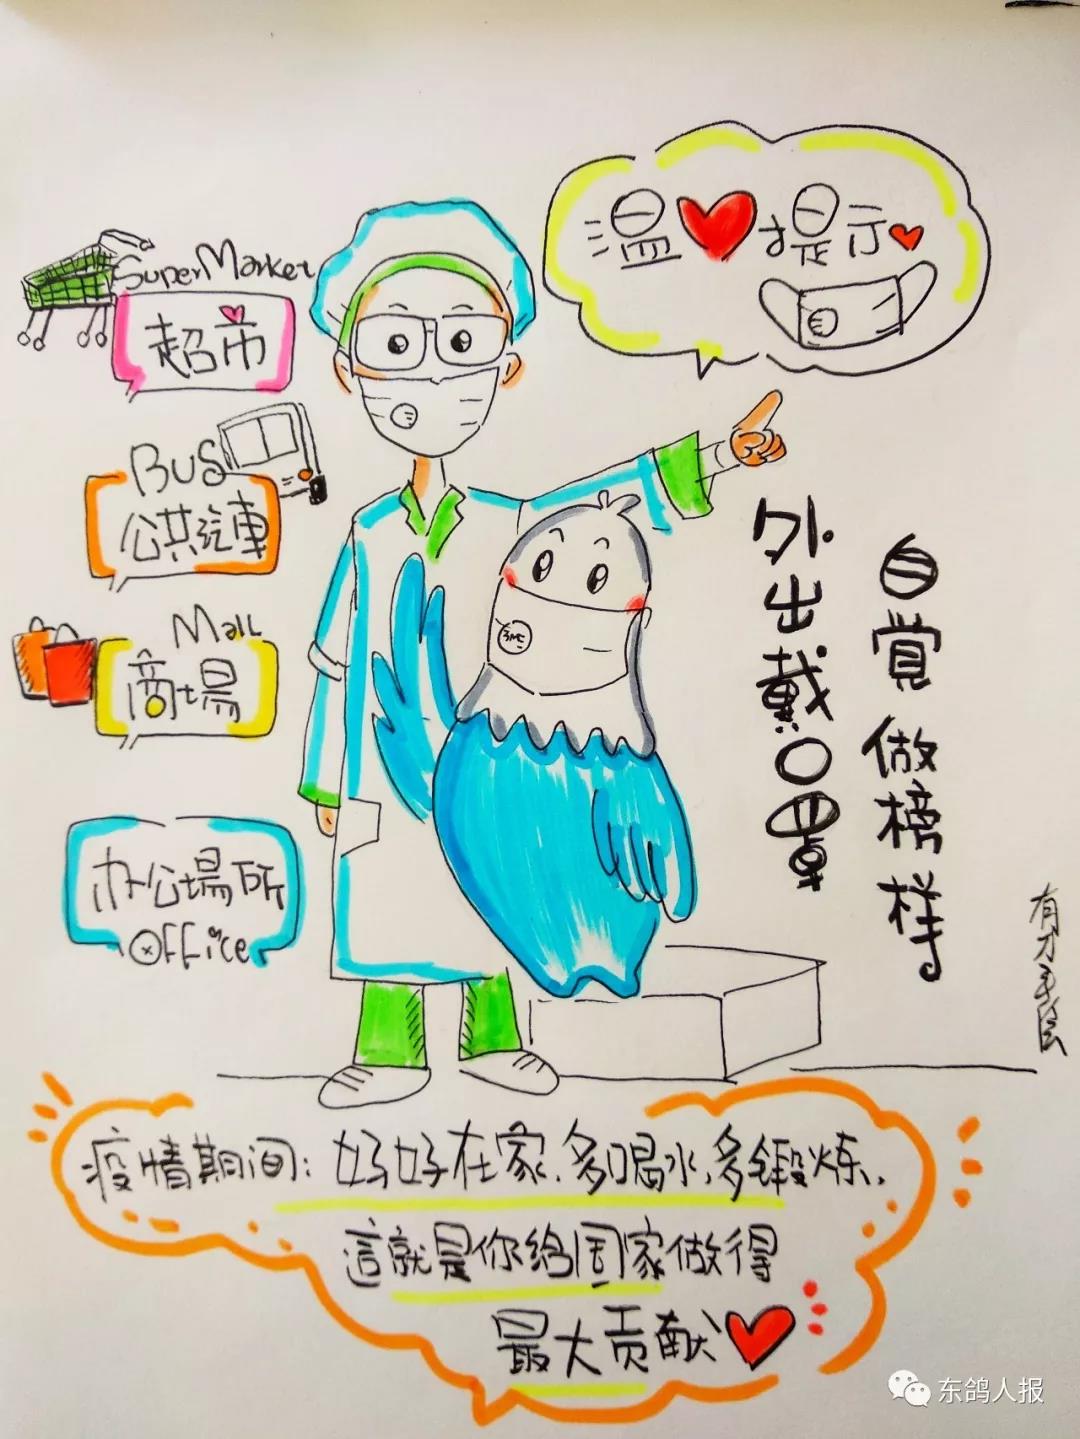 温❤提示❤
SuperMarket
超市
BUS
公共汽車
Mall
商場
办公場所
OFFice
外出戴口罩
自觉做榜样
有才手绘
疫情期间：好好在家、多喝水，多锻炼，
這就是你给国家做得
最大贡献❤
东鸽人报